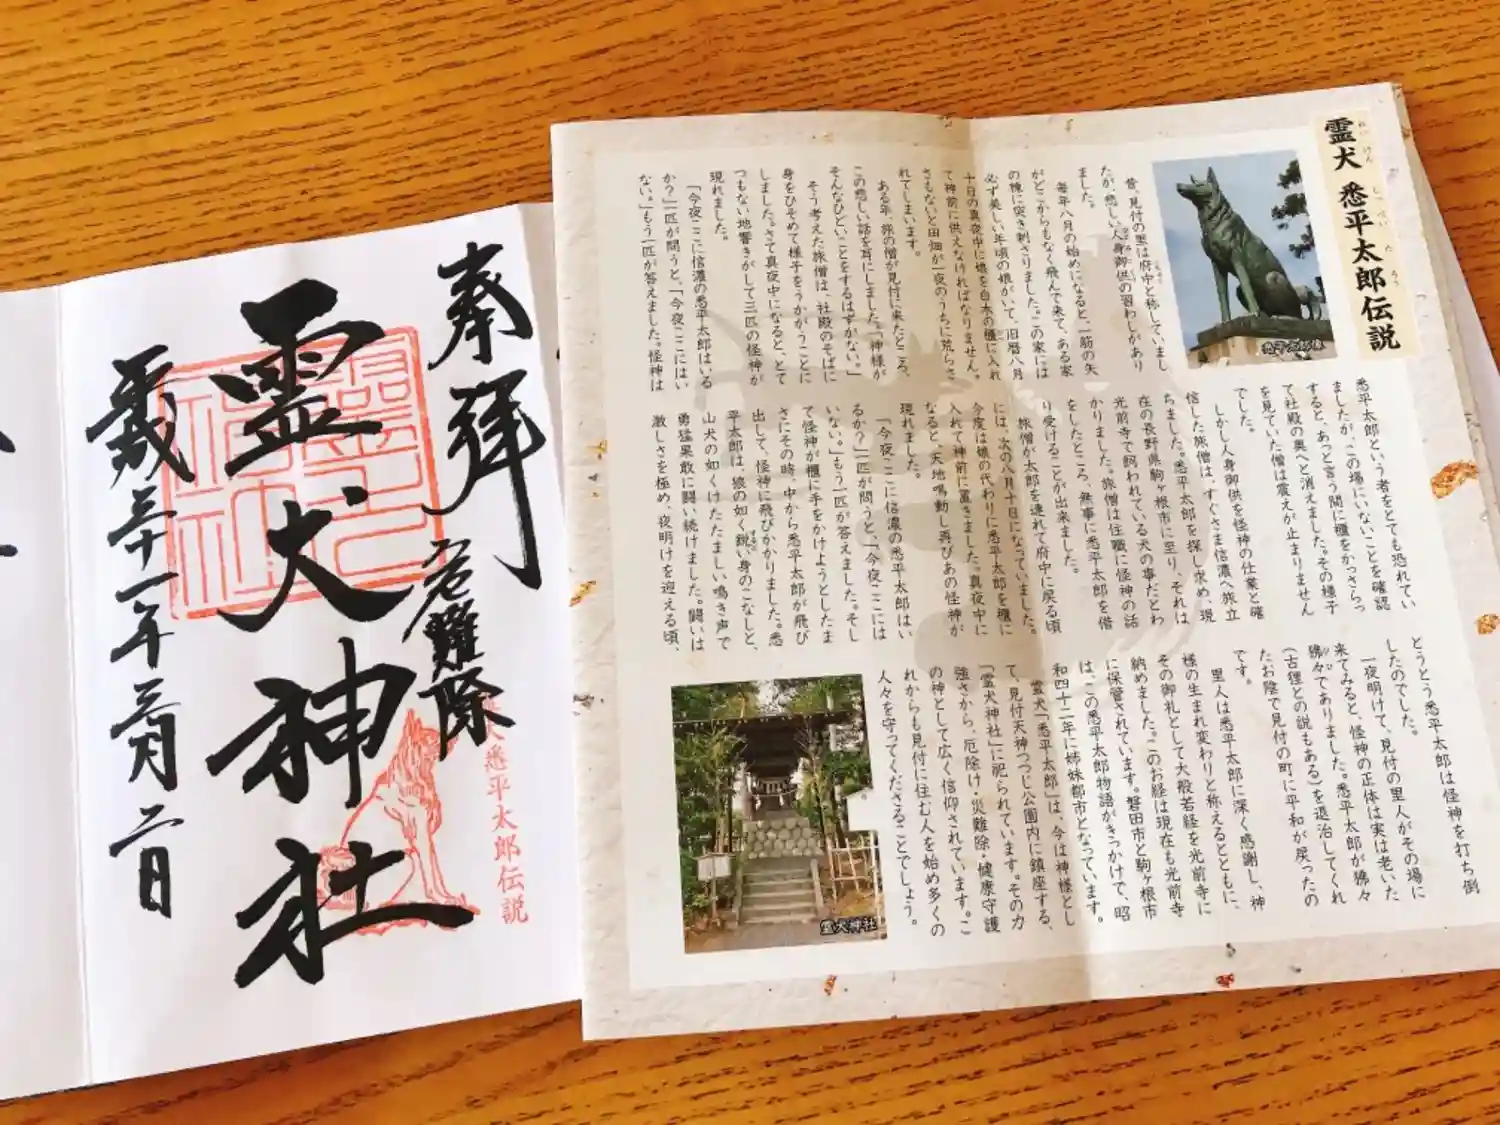 奉拝
危難除
霊犬神社
平成三十一年三月二日
悉平太郎伝説
霊犬 悉平太郎伝説
れいけん しっぺいたろう
悉平太郎像
昔、見付の里は府中と称していまし
たが、悲しい人身御供の習わしがあり
ました。
毎年八月の始めになると、一筋の矢
がどこからもなく飛んで来て、ある家
の棟に突き刺さりました。この家には
必ず美しい年頃の娘がいて、旧暦八月
十日の真夜中に娘を白木の櫃に入れ
て神前に供えなければなりません。
さもないと田畑が一夜のうちに荒らさ
れてしまいます。
ある年、旅の僧が見付に来たところ、
この悲しい話を耳にしました。「神様が
そんなひどいことをするはずがない。」
そう考えた旅僧は、社殿のそばに
身をひそめて様子をうかがうことに
しました。さて真夜中になると、とて
つもない地響きがして三匹の怪神が
現れました。
「今夜ここに信濃の悉平太郎はいる
か?」一匹が問うと、「今夜ここにはい
ない。」もう一匹が答えました。怪神は
悉平太郎という者をとても恐れてい
ましたが、この場にいないことを確認
すると、あっと言う間に櫃をかっさらっ
て社殿の奥へと消えました。その様子
を見ていた僧は震えが止まりません
でした。
しかし人身御供を怪神の仕業と確
信した旅僧は、すぐさま信濃へ旅立
ちました。悉平太郎を探し求め、現
在の長野県駒ヶ根市に至り、それは
光前寺で飼われている犬の事だとわ
かりました。旅僧は住職に怪神の話
をしたところ、無事に悉平太郎を借
り受けることが出来ました。
旅僧が太郎を連れて府中に戻る頃
には、次の八月十日になっていました。
今度は娘の代わりに悉平太郎を櫃に
入れて神前に置きました。真夜中に
なると、天地鳴動し再びあの怪神が
現れました。
「今夜ここに信濃の悉平太郎はい
るか?」一匹が問うと、「今夜ここには
いない。」もう一匹が答えました。そし
て怪神が櫃に手をかけようとしたま
さにその時、中から悉平太郎が飛び
出して、怪神に飛びかかりました。悉
平太郎は、狼の如く鋭い身のこなしと、
山犬の如くけたたましい鳴き声で
勇猛果敢に闘い続けました。闘いは
激しさを極め、夜明けを迎える頃、
とうとう悉平太郎は怪神を打ち倒
したのでした。
一夜明けて、見付の里人がその場に
来てみると、怪神の正体は実は老いた
狒々でありました。悉平太郎が狒々
(古狸との説もある)を退治してくれ
たお陰で見付の町に平和が戻ったの
です。
里人は悉平太郎に深く感謝し、神
様の生まれ変わりと称えるとともに、
その御礼として大般若経を光前寺に
納めました。このお経は現在も光前寺
に保管されています。磐田市と駒ヶ根市
は、この悉平太郎物語がきっかけで、昭
和四十二年に姉妹都市となっています。
霊犬「悉平太郎」は、今は神様とし
て、見付天神つつじ公園内に鎮座する、
「霊犬神社」に祀られています。その力
強さから、厄除け・災難除・健康守護
の神として広く信仰されています。こ
れからも見付に住む人を始め多くの
人々を守ってくださることでしょう。
霊犬神社